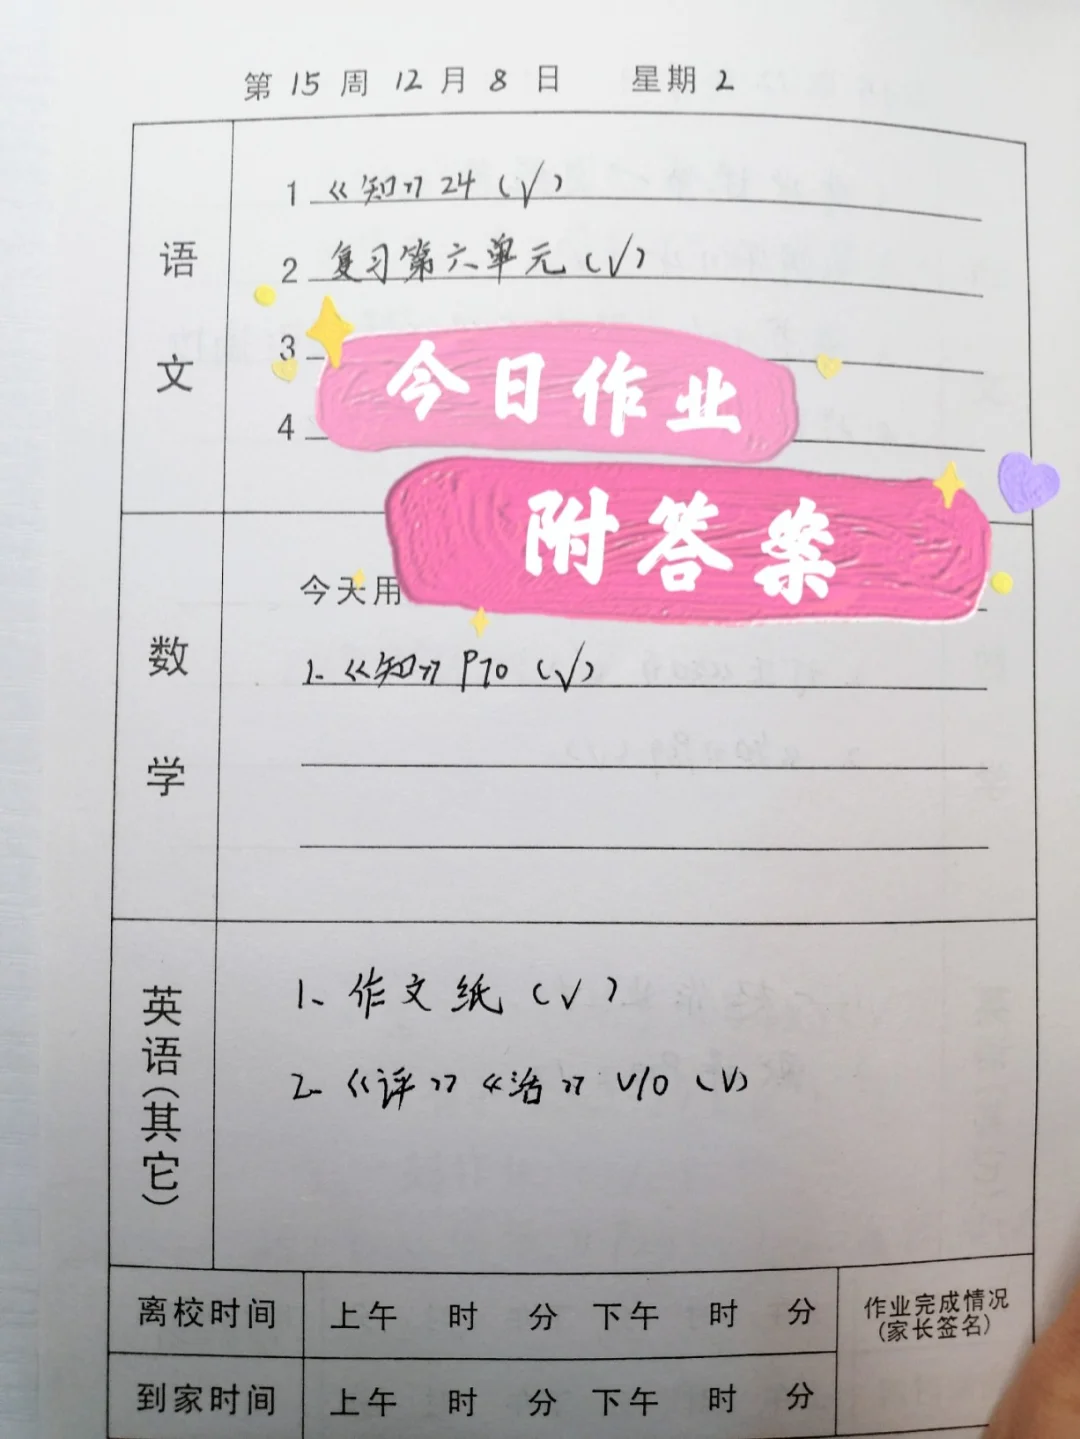 第 15 周 12 月 8 日 星期 2
语文
1 《知》24（√）
2 复习第六单元（√）
3
4
今日作业
附答案
数学
今天用
1.《知》P70（√）
英语（其它）
1、作文纸（√）
2.《评》《活》V10（√）
离校时间 上午 时 分 下午 时 分
作业完成情况
（家长签名）
到家时间 上午 时 分 下午 时 分